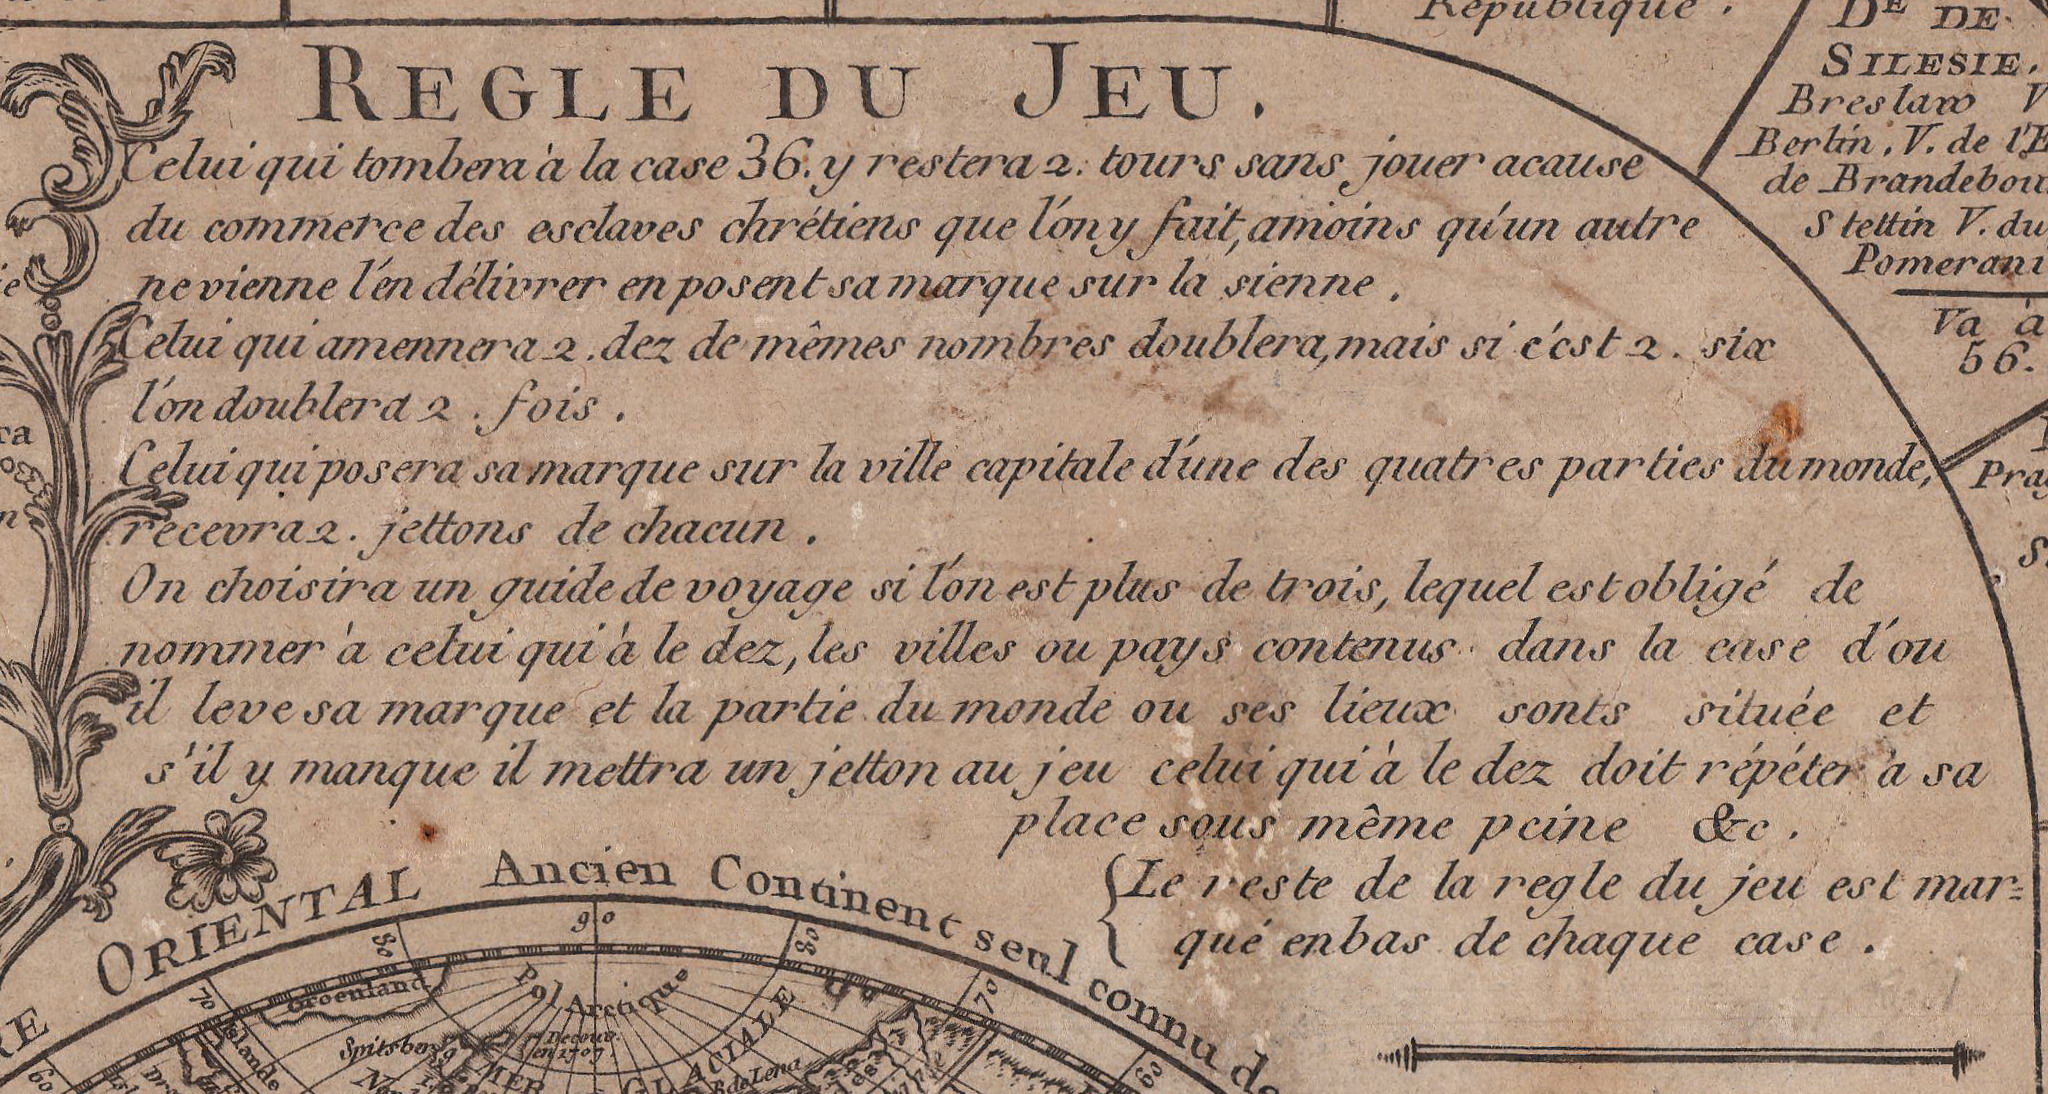 République.
DE DE
SILESIE.
Breslaw V
Berlin. V. de l'E
de Brandebou
Stettin V. du
Pomerani
Va à
56.
REGLE DU JEU.
Celui qui tombera à la case 36. y restera 2. tours sans jouer acause
du commerce des esclaves chrétiens que l'on y fait, amoins qu'un autre
ne vienne l'en délivrer en posent sa marque sur la sienne.
Celui qui amennera 2. dez de mêmes nombres doublera, mais si c'est 2. six
l'on doublera 2. fois.
Celui qui posera sa marque sur la ville capitale d'une des quatres parties du monde,
recevra 2. jettons de chacun.
On choisira un guide de voyage si l'on est plus de trois, lequel est obligé de
nommer à celui qui à le dez, les villes ou pays contenus dans la case d'ou
il leve sa marque et la partie du monde ou ses lieux sonts située et
s'il y manque il mettra un jetton au jeu celui qui à le dez doit répéter à sa
place sous même peine &c.
Le reste de la regle du jeu est mar=
qué enbas de chaque case.
Prag
ORIENTAL Ancien Continent seul connu de
80 90 80
70 70
60 60
Groenland
Pol Arctique
Spitsberg
Decouv.
en 1707.
MER GLACIALE
R de Lena